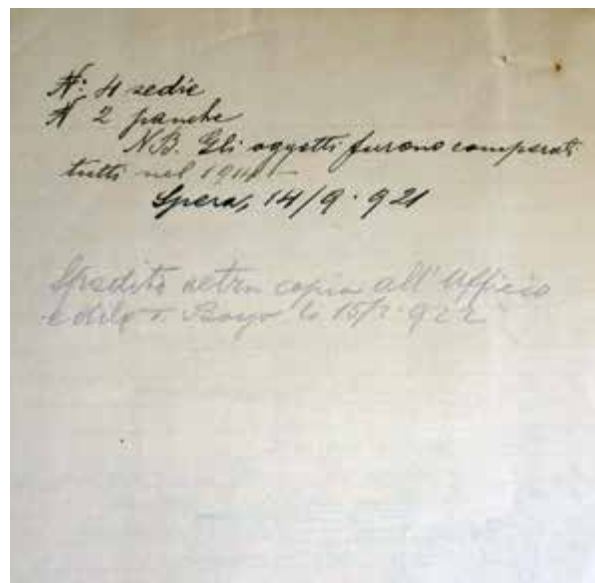 N: 4 sedie
N 2 panche
NB. Gli oggetti furono comperati
tutti nel
Spera, 14/9 · 921
Spedita altra copia all' Ufficio
edile Borgo li 922